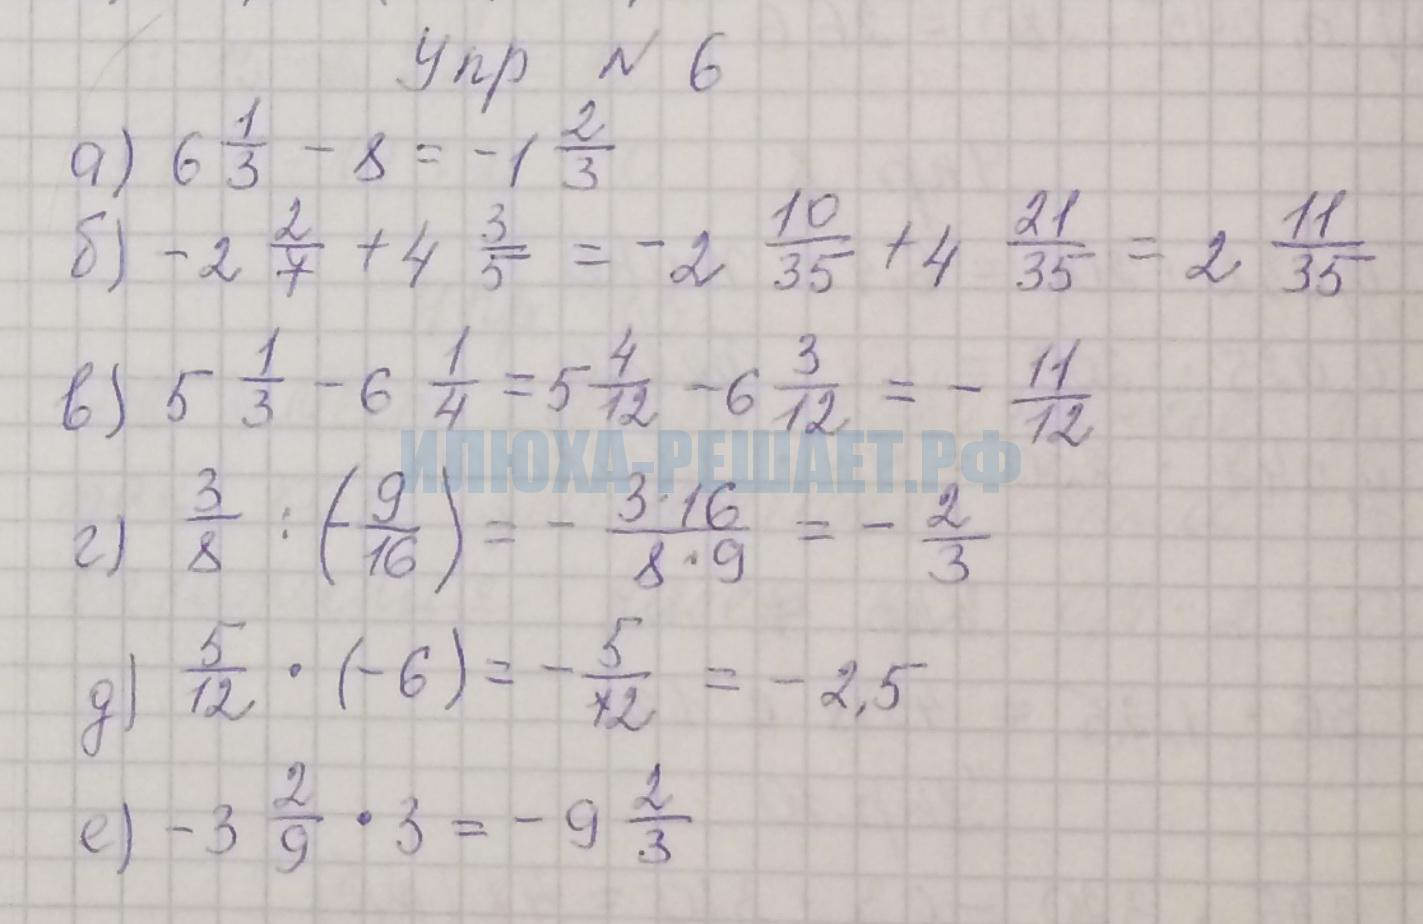 Упр № 6
а) 6 1/3 - 8 = -1 2/3
б) -2 2/7 + 4 3/5 = -2 10/35 + 4 21/35 = 2 11/35
в) 5 1/3 - 6 1/4 = 5 4/12 - 6 3/12 = - 11/12
ИЛЮХА-РЕШАЕТ.РФ
г) 3/8 : (-9/16) = - 3·16/8·9 = - 2/3
д) 5/12 · (-6) = - 5/12 = - 2,5
е) -3 2/9 · 3 = -9 2/3